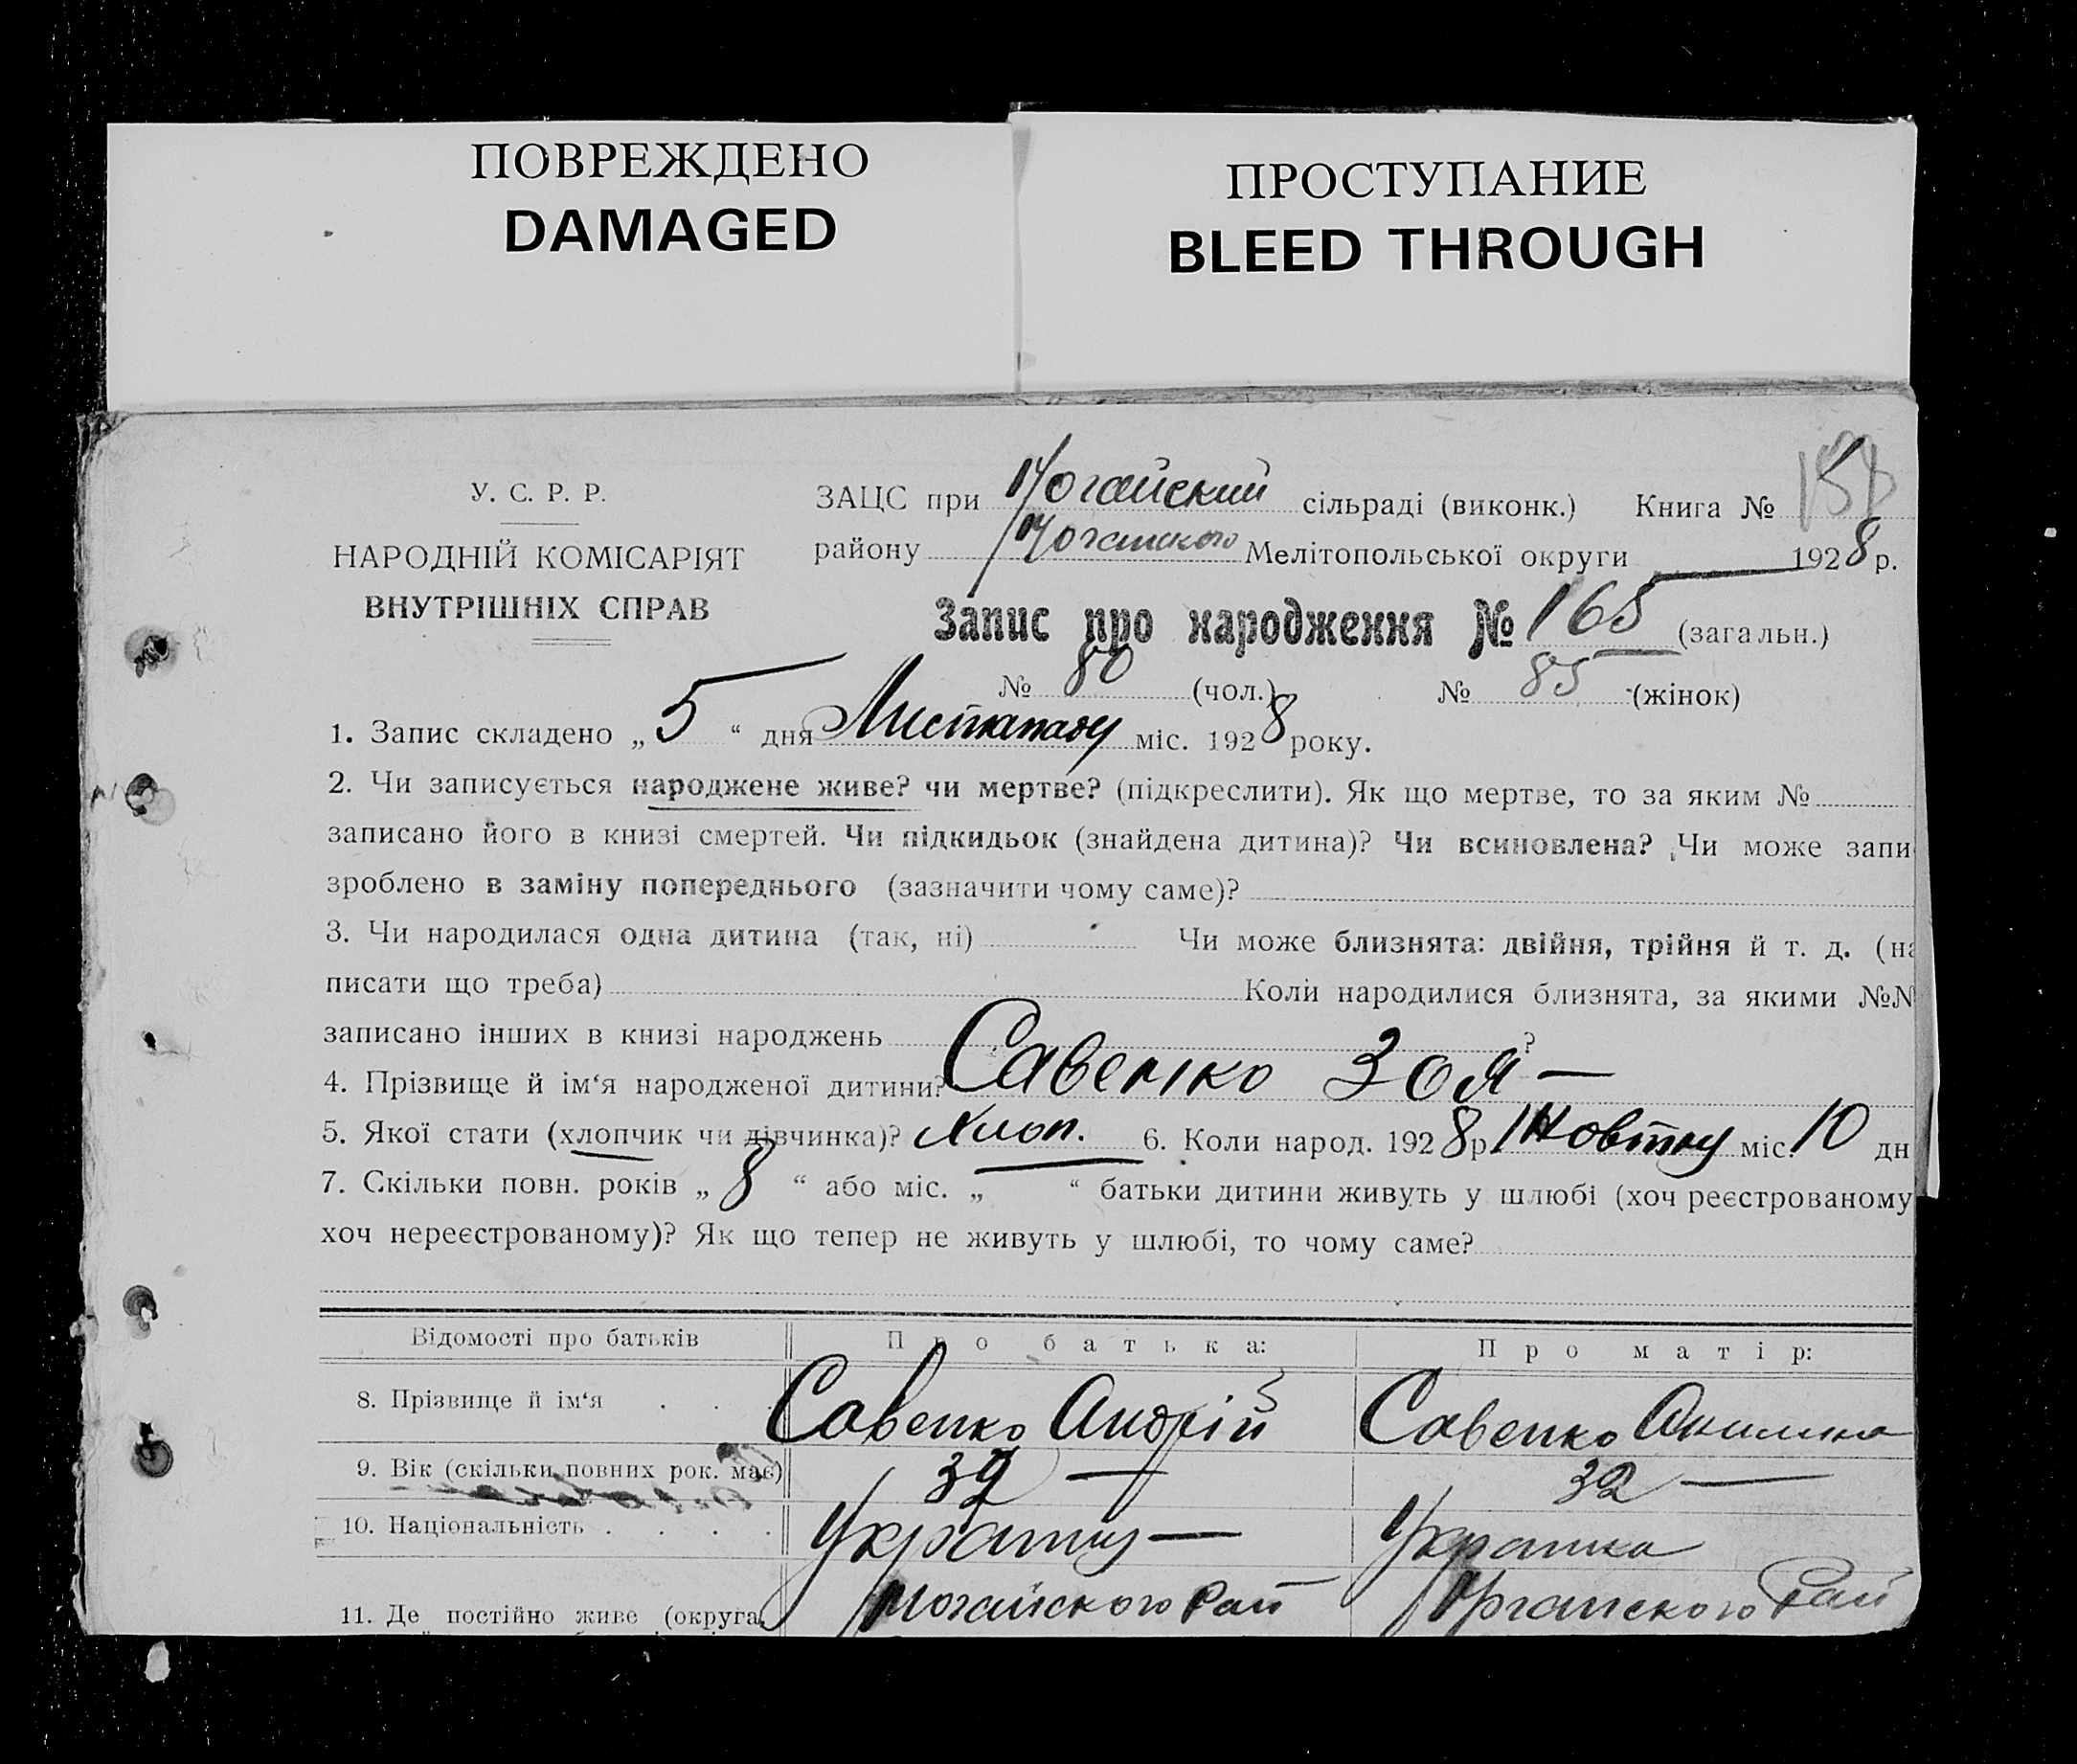 ПОВРЕЖДЕНО
DAMAGED
ПРОСТУПАНИЕ
BLEED THROUGH
У. С. Р. Р.
НАРОДНІЙ КОМІСАРІЯТ
ВНУТРІШНІХ СПРАВ
ЗАЦС при Ногайский сільраді (виконк.) Книга №
району Ногайського Мелітопольської округи 1928 р.
Запис про народження № 165 (загальн.)
№ 80 (чол.) № 85 (жінок)
1. Запис складено „ 5 “ дня Листопаду міс. 1928 року.
2. Чи записується народжене живе? чи мертве? (підкреслити). Як що мертве, то за яким №
записано його в книзі смертей. Чи підкидьок (знайдена дитина)? Чи всиновлена? Чи може запи
зроблено в заміну попереднього (зазначити чому саме)?
3. Чи народилася одна дитина (так, ні) Чи може близнята: двійня, трійня й т. д. (на
писати що треба) Коли народилися близнята, за якими №№
записано інших в книзі народжень ?
4. Прізвище й ім‘я народженої дитини? Савенко Зоя —
5. Якої стати (хлопчик чи дівчинка)? Хлоп. 6. Коли народ. 1928 р. Жовтню міс. 10 дн
7. Скільки повн. років „ 8 “ або міс. „ “ батьки дитини живуть у шлюбі (хоч реєстрованому
хоч нереєстрованому)? Як що тепер не живуть у шлюбі, то чому саме?
Відомості про батьків Про батька: Про матір:
8. Прізвище й ім‘я . . Савенко Андрій Савенко Акилина
9. Вік (скільки повних рок. має) 32 — 32 —
10. Національність . . . . Українц — Українка
11. Де постійно живе (округа, Ногайского Рай Ногайского Рай